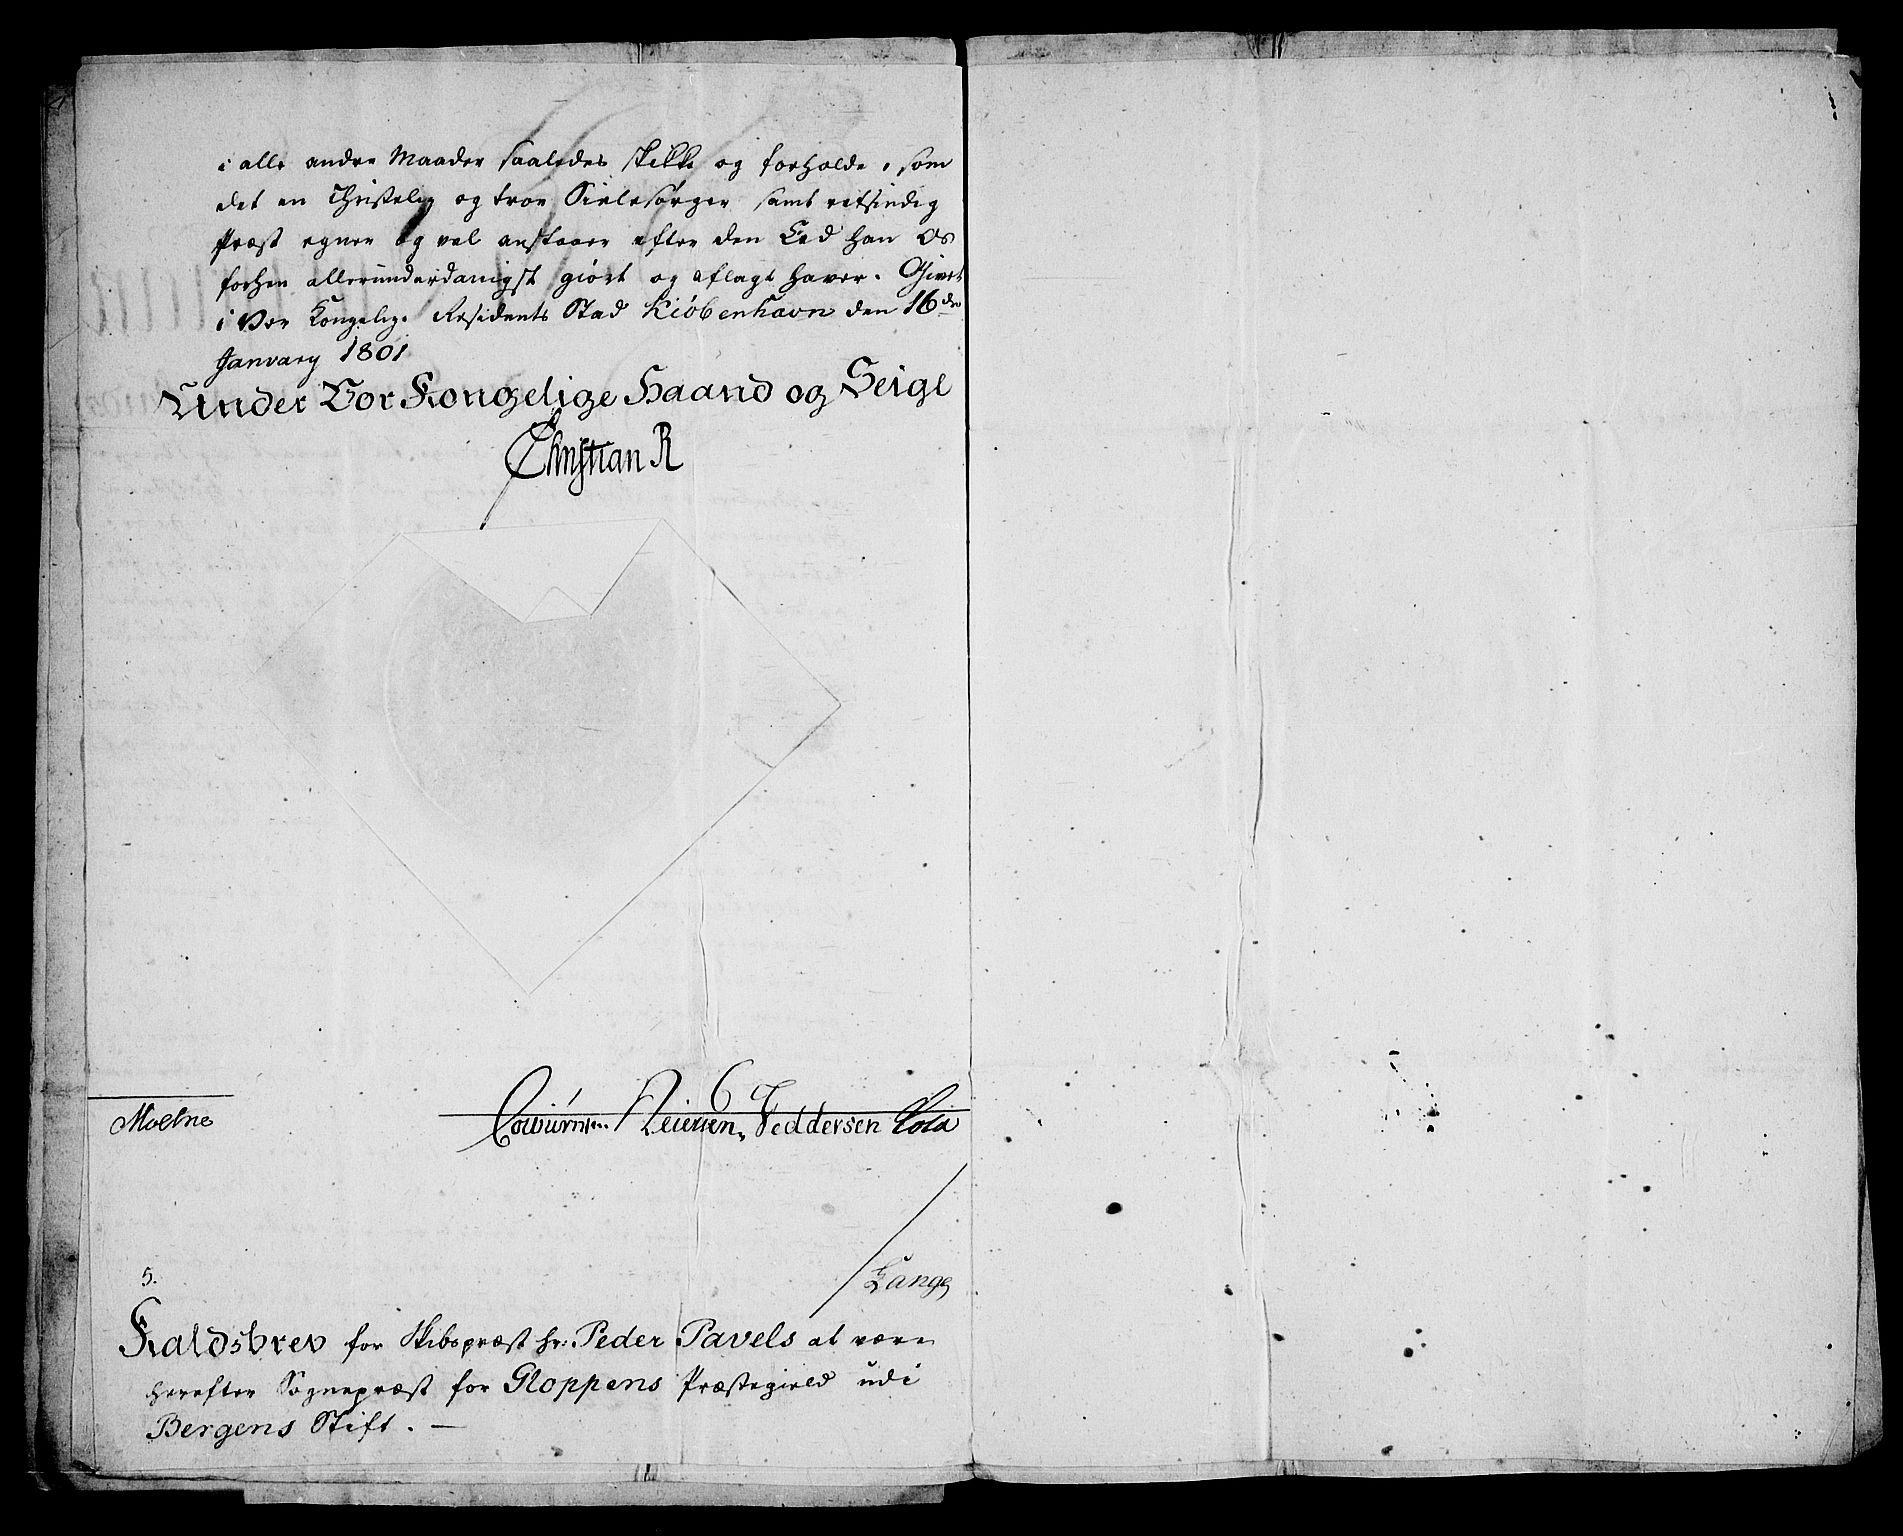 i alle andre Maader saaledes skikke og forholde, som
det en Christelig og troe Sielesørger samt retsindig
Præst egner og vel anstaaer efter den Eed han Os
forhen allerunderdanigst giort og aflagt haver. Givet
i Vor Kongelige Residents Stad Kiöbenhavn den 16de
January 1801
Under Vor Kongelige Haand og Seigl
Christian R
Moltne
Reiersen, Feddersen
Lange
5.
Kaldsbrev for Skibspræst hr: Peder Pavels at være
herefter Sognepræst for Gloppens Præstegield udi
Bergens Stift. —